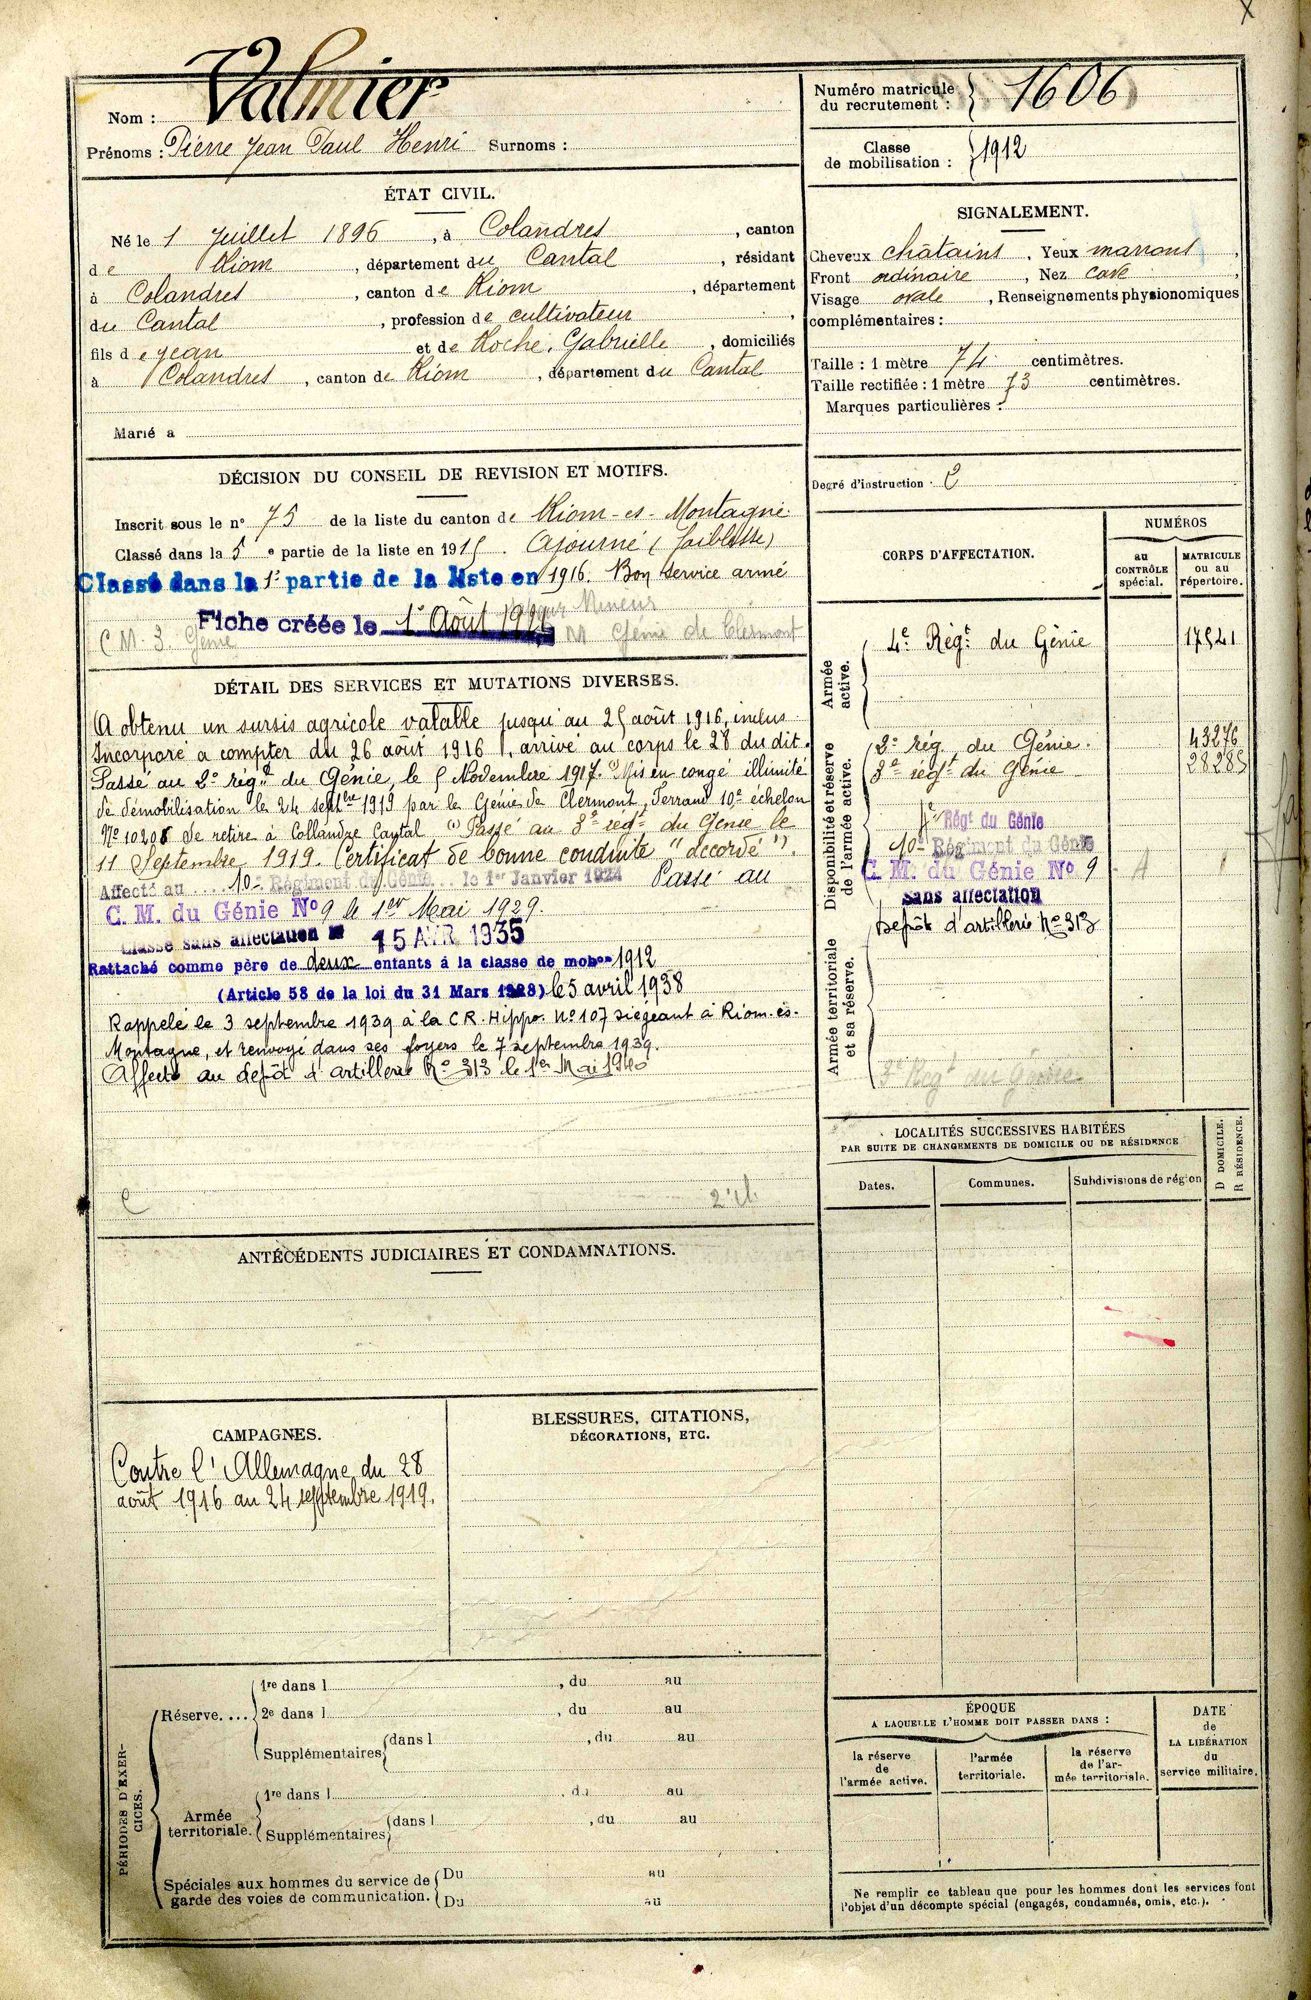 Nom : Valmier
Prénoms : Pierre Jean Paul Henri Surnoms :
Numéro matricule du recrutement : 1606
Classe de mobilisation : 1912
ÉTAT CIVIL.
Né le 1 Juillet 1896, à Colandres, canton
de Riom, département du Cantal, résidant
à Colandres, canton de Riom, département
du Cantal, profession de cultivateur,
fils de Jean et de Roche, Gabrielle, domiciliés
à Colandres, canton de Riom, département du Cantal
Marié a
SIGNALEMENT.
Cheveux châtains, Yeux marrons,
Front ordinaire, Nez cave,
Visage ovale, Renseignements physionomiques
complémentaires :
Taille : 1 mètre 74 centimètres.
Taille rectifiée : 1 mètre 73 centimètres.
Marques particulières :
Degré d'instruction : 2
DÉCISION DU CONSEIL DE REVISION ET MOTIFS.
Inscrit sous le n° 75 de la liste du canton de Riom-es-Montagne.
Classé dans la 5e partie de la liste en 1915. Ajourné (faiblesse)
Classé dans la 1e partie de la liste en 1916. Bon service armé
Mineur
Fiche créée le 1e Août 1921
C M. 3. Génie M Génie de Clermont
DÉTAIL DES SERVICES ET MUTATIONS DIVERSES.
A obtenu un sursis agricole valable jusqu'au 25 août 1916, inclus
Incorporé a compter du 26 août 1916, arrivé au corps le 28 du dit.
Passé au 2e régt du Génie, le 5 Novembre 1917. (1) Mis en congé illimité
de démobilisation le 24 septbre 1919 par le Génie de Clermont Ferrand 10e échelon
No 10208 Se retire à Collandze Cantal (1) Passé au 3e régt du Génie le
11 Septembre 1919. Certificat de bonne conduite "accordé".
Affecté au 10e Régiment du Génie le 1er Janvier 1924 Passé au
C. M. du Génie No 9 le 1er Mai 1929.
Classé sans affectation le 15 AVR 1935
Rattaché comme père de deux enfants à la classe de mobon 1912
(Article 58 de la loi du 31 Mars 1928) le 5 avril 1938
Rappelé le 3 septembre 1939 à la C R. Hippo. No 107 siégeant à Riom-ès-
Montagne, et renvoyé dans ses foyers le 7 septembre 1939.
Affecté au dépôt d'artillerie No 313 le 1er Mai 1940
C 2e cl.
CORPS D'AFFECTATION.
NUMÉROS
au CONTRÔLE spécial.
MATRICULE ou au répertoire.
Armée active.
4e Régt du Génie 17541
Disponibilité et réserve de l'armée active.
2e rég du Génie. 43276
3e régt du Génie 28285
Régt du Génie
10e Régiment du Génie
C. M. du Génie No 9 A
Sans affectation
Dépôt d'artillerie No 313
Armée territoriale et sa réserve.
3e Régt du Génie
LOCALITÉS SUCCESSIVES HABITÉES
PAR SUITE DE CHANGEMENTS DE DOMICILE OU DE RÉSIDENCE
Dates. Communes. Subdivisions de région
D DOMICILE.
R RÉSIDENCE.
ANTÉCÉDENTS JUDICIAIRES ET CONDAMNATIONS.
CAMPAGNES.
Contre l'Allemagne du 28
août 1916 au 24 septembre 1919.
BLESSURES, CITATIONS,
DÉCORATIONS, ETC.
PÉRIODES D'EXERCICES.
Réserve....
1re dans l , du au
2e dans l , du au
Supplémentaires dans l , du au
Armée territoriale.
1re dans l , du au
Supplémentaires dans l , du au
Spéciales aux hommes du service de garde des voies de communication.
Du au
Du au
ÉPOQUE
A LAQUELLE L'HOMME DOIT PASSER DANS :
la réserve de l'armée active.
l'armée territoriale.
la réserve de l'armée territoriale.
DATE de LA LIBÉRATION du service militaire.
Ne remplir ce tableau que pour les hommes dont les services font
l'objet d'un décompte spécial (engagés, condamnés, omis, etc.).